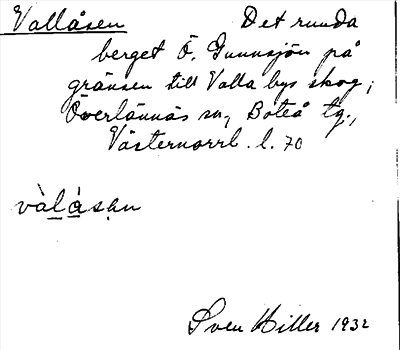 Vallåsen Det runda
berget Ö. Gunnsjön på
gränsen till Valla bys skog;
Överlännäs sn, Boteå tg.,
Västernorrl. l. 70
vàlàsən
Sven Hiller 1932